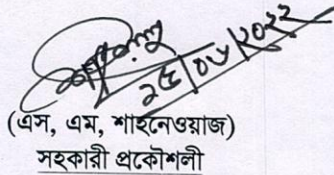 ২৫/০৮/২০২২
(এস, এম, শাহনেওয়াজ)
সহকারী প্রকৌশলী